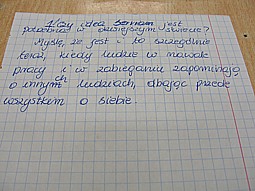 1. Czy idea jest
potrzebna w dzisiejszym świecie?
Myślę, że jest i to szczególnie
teraz, kiedy ludzie w nawale
pracy i w zabieganiu zapominają
o innych ludziach, dbając przede
wszystkim o siebie.